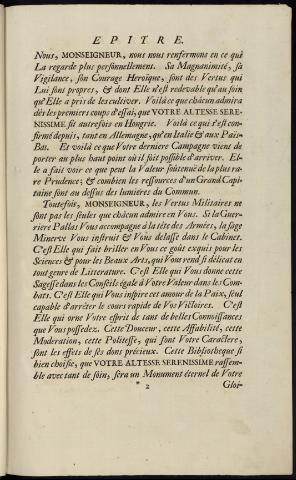 EPITRE.
Nous, MONSEIGNEUR, nous nous renfermons en ce qui
La regarde plus personnellement. Sa Magnanimité, sa
Vigilance, son Courage Heroïque, sont des Vertus qui
Lui sont propres, & dont Elle n'est redevable qu'au soin
qu'Elle a pris de les cultiver. Voilà ce que chacun admira
dès les premiers coups d'essai, que VOTRE ALTESSE SERE-
NISSIME fit autrefois en Hongrie. Voilà ce qui s'est con-
firmé depuis, tant en Allemagne, qu'en Italie & aux Pais-
Bas. Et voilà ce que Votre derniere Campagne vient de
porter au plus haut point où il soit possible d'arriver. El-
le a fait voir ce que peut la Valeur soûtenue de la plus ra-
re Prudence; & combien les ressources d'un Grand Capi-
taine sont au dessus des lumiéres du Commun.
Toutefois, MONSEIGNEUR, les Vertus Militaires ne
sont pas les seules que chacun admire en Vous. Si la Guer-
riere Pallas Vous accompagne à la tête des Armées, la sage
Minerve Vous instruit & Vous délasse dans le Cabinet.
C'est Elle qui fait briller en Vous ce goût exquis pour les
Sciences & pour les Beaux Arts, qui Vous rend si délicat en
tout genre de Litterature. C'est Elle qui Vous donne cette
Sagesse dans les Conseils égale à Votre Valeur dans les Com-
bats. C'est Elle qui Vous inspire cet amour de la Paix, seul
capable d'arrêter le cours rapide de Vos Victoires. C'est
Elle qui orne Votre esprit de tant de belles Connoissances
que Vous possedez. Cette Douceur, cette Affabilité, cette
Moderation, cette Politesse, qui sont Votre Caractère,
sont les effets de ses dons précieux. Cette Bibliotheque si
bien choisie, que VOTRE ALTESSE SERENISSIME rassem-
ble avec tant de soin, sera un Monument éternel de Votre
* 2 Gloi-